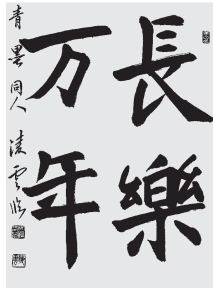 長樂
万年
青墨同人 凌雲臨